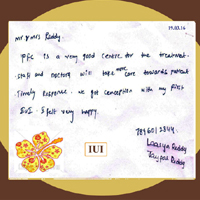 19.03.16
Mr & Mrs Reddy.
PFC is a very good centre for the treatment.
staff and doctors will take more care towards patient
Timely response. we got conception with my first
IUI. I felt very happy.
Reddy
Reddy
IUI